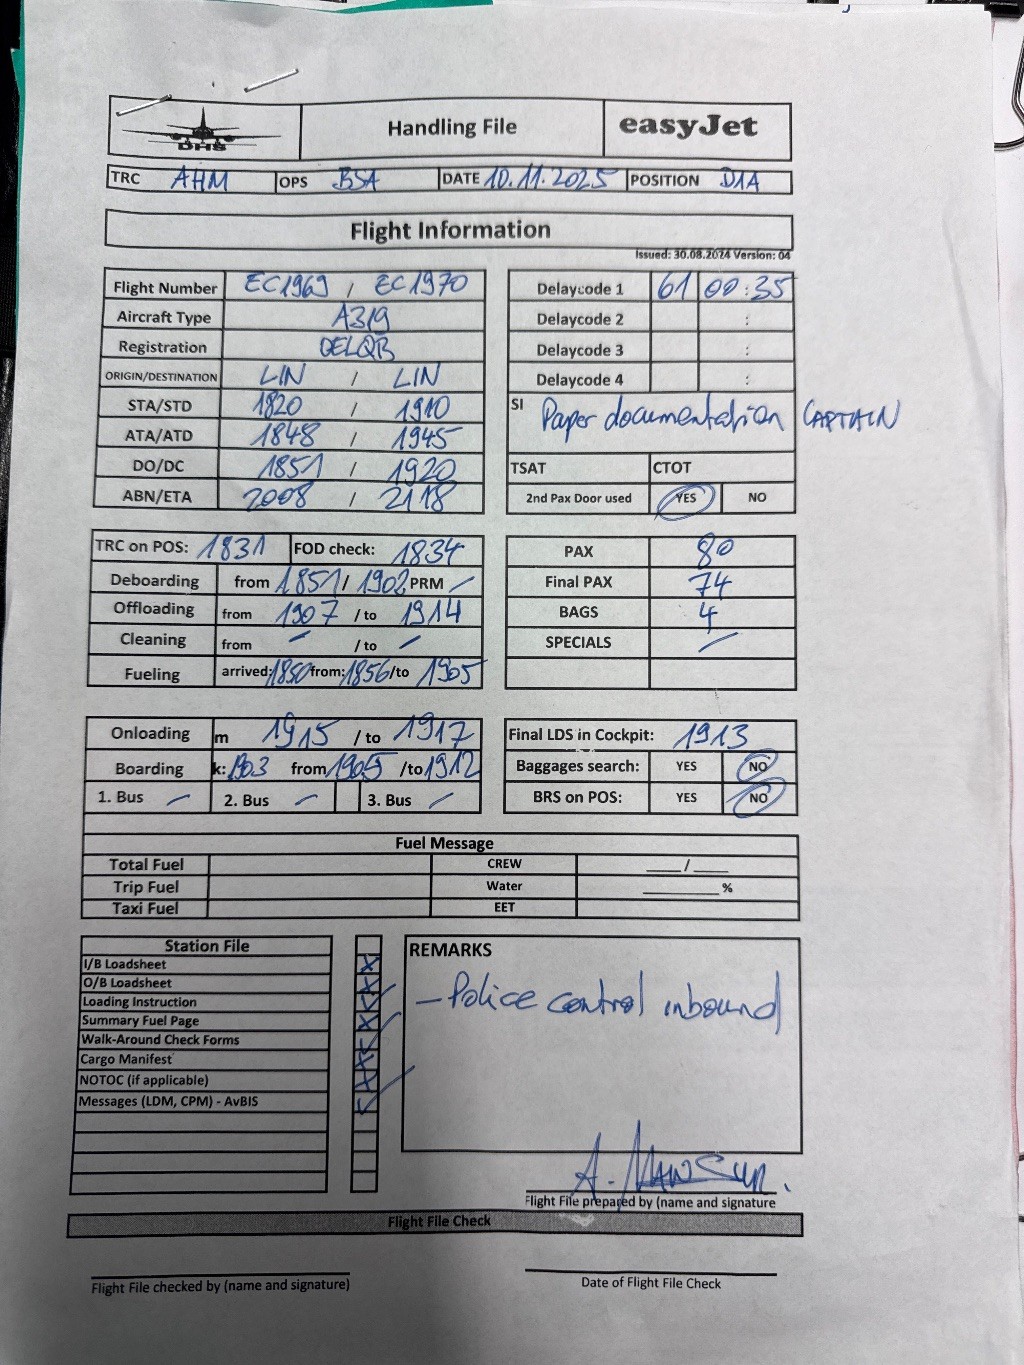 DHS
Handling File
easyJet
TRC AHM OPS BSA DATE 10.11.2025 POSITION D1A
Flight Information
Issued: 30.08.2024 Version: 04
Flight Number EC1969 / EC1970
Aircraft Type A319
Registration OELQB
ORIGIN/DESTINATION LIN / LIN
STA/STD 1820 / 1910
ATA/ATD 1848 / 1945
DO/DC 1851 / 1920
ABN/ETA 2008 / 2118
Delaycode 1 61 00:35
Delaycode 2 :
Delaycode 3 :
Delaycode 4 :
SI Paper documentation CAPTAIN
TSAT CTOT
2nd Pax Door used YES NO
TRC on POS: 1831 FOD check: 1834
Deboarding from 1851 / 1902 PRM –
Offloading from 1907 / to 1914
Cleaning from – / to –
Fueling arrived: 1850 from: 1856 /to 1905
PAX 80
Final PAX 74
BAGS 4
SPECIALS –
Onloading m 1915 / to 1917
Boarding k: 1903 from 1905 /to 1912
1. Bus – 2. Bus – 3. Bus –
Final LDS in Cockpit: 1913
Baggages search: YES NO
BRS on POS: YES NO
Fuel Message
Total Fuel CREW ____/____
Trip Fuel Water ________%
Taxi Fuel EET
Station File
I/B Loadsheet X
O/B Loadsheet X
Loading Instruction X
Summary Fuel Page X
Walk-Around Check Forms X
Cargo Manifest X
NOTOC (if applicable) X
Messages (LDM, CPM) - AvBIS
REMARKS
– Police control inbound
A. Mansur.
Flight File prepared by (name and signature
Flight File Check
Flight File checked by (name and signature)
Date of Flight File Check